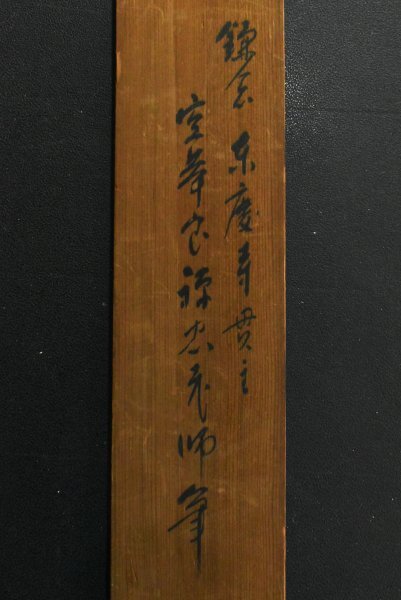 鎌倉 東慶寺貫主
空華室禅忠老師筆